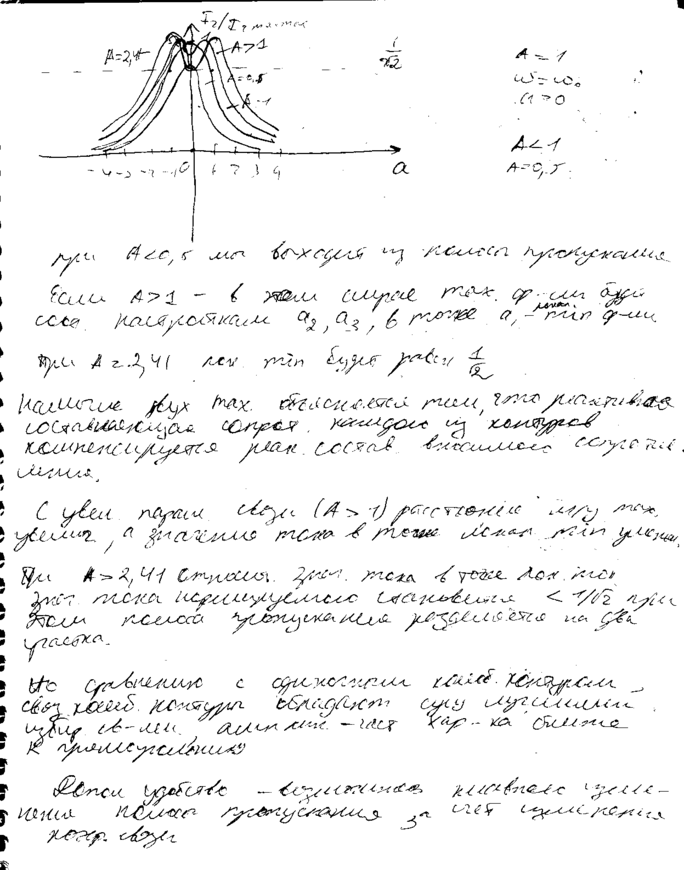 I₂/I₂ max max
A=2,41
A>1
A=0,5
A=1
1/√2
-4 -3 -2 -1 0 1 2 3 4
a
A = 1
ω = ω₀
a = 0
A < 1
A=0,5
при A<0,5 мы выходим из полосы пропускания
Если A>1 – в этом случае max. ф-ии будут
соот. настройкам a₂, a₃, в точке a₁ – локал min ф-ии
При A = 2,41 лок. min будет равен 1/√2
Наличие двух max. объясняется тем, что реактивная
составляющая сопрот. каждого из контуров
компенсируется реак. состав. вносимого сопротив-
ления.
С увел. парам. связи (A > 1) расстояние между max.
увелич, а значение тока в точке локал min уменьш.
При A > 2,41 знач. тока в точке лок. min
знач. тока нормируемого становится < 1/√2 при
этом полоса пропускания разделяется на два
участка.
По сравнению с одиночным колеб. контуром,
связ. колеб. контуры обладают лучшими
избир. св-ми, амплит. – част хар-ка ближе
к прямоугольной
удобство – возможность плавного изме-
нения полосы пропускания за счёт изменения
связи